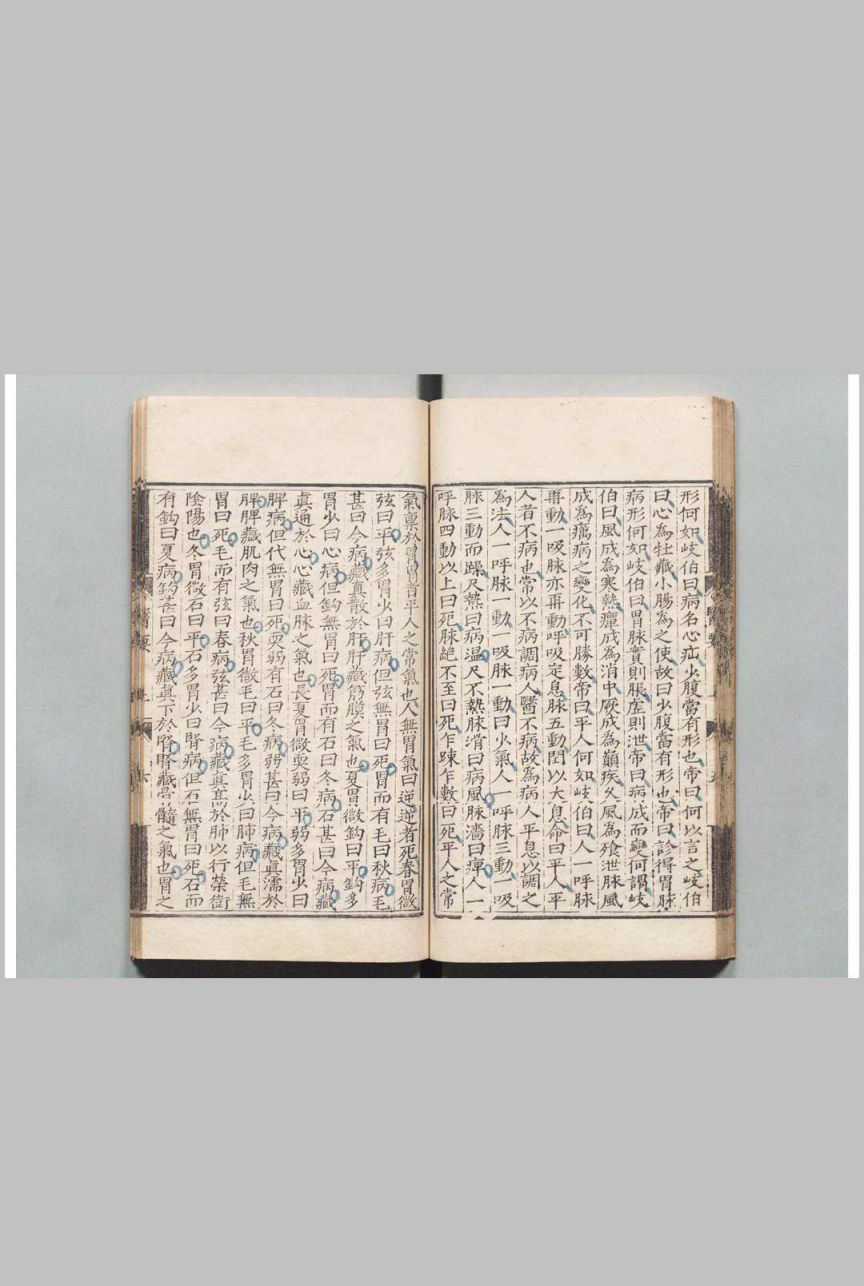 形何如岐伯曰病名心疝少腹當有形也帝曰何以言之岐伯
曰心為牡藏小腸為之使故曰少腹當有形也帝曰診得胃脉
病形何如岐伯曰胃脉實則脹虛則泄帝曰病成而變何謂岐
伯曰風成為寒熱癉成為消中厥成為巔疾久風為飧泄脉風
成為癘病之變化不可勝數帝曰平人何如岐伯曰人一呼脉
再動一吸脉亦再動呼吸定息脉五動閏以大息命曰平人平
人者不病也常以不病調病人醫不病故為病人平息以調之
為法人一呼脉一動一吸脉一動曰少氣人一呼脉三動一吸
脉三動而躁尺熱曰病温尺不熱脉滑曰病風脉濇曰痺人一
呼脉四動以上曰死脉絶不至曰死乍踈乍數曰死平人之常
氣禀於胃胃者平人之常氣也人無胃氣曰逆逆者死春胃微
弦曰平弦多胃少曰肝病但弦無胃曰死胃而有毛曰秋病毛
甚曰今病藏真散於肝肝藏筋膜之氣也夏胃微鈎曰平鈎多
胃少曰心病但鈎無胃曰死胃而有石曰冬病石甚曰今病藏
真通於心心藏血脉之氣也長夏胃微耎弱曰平弱多胃少曰
脾病但代無胃曰死耎弱有石曰冬病弱甚曰今病藏真濡於
脾脾藏肌肉之氣也秋胃微毛曰平毛多胃少曰肺病但毛無
胃曰死毛而有弦曰春病弦甚曰今病藏真髙於肺以行榮衛
陰陽也冬胃微石曰平石多胃少曰腎病但石無胃曰死石而
有鈎曰夏病鈎甚曰今病藏真下於腎腎藏骨髓之氣也胃之
醫要
上
六